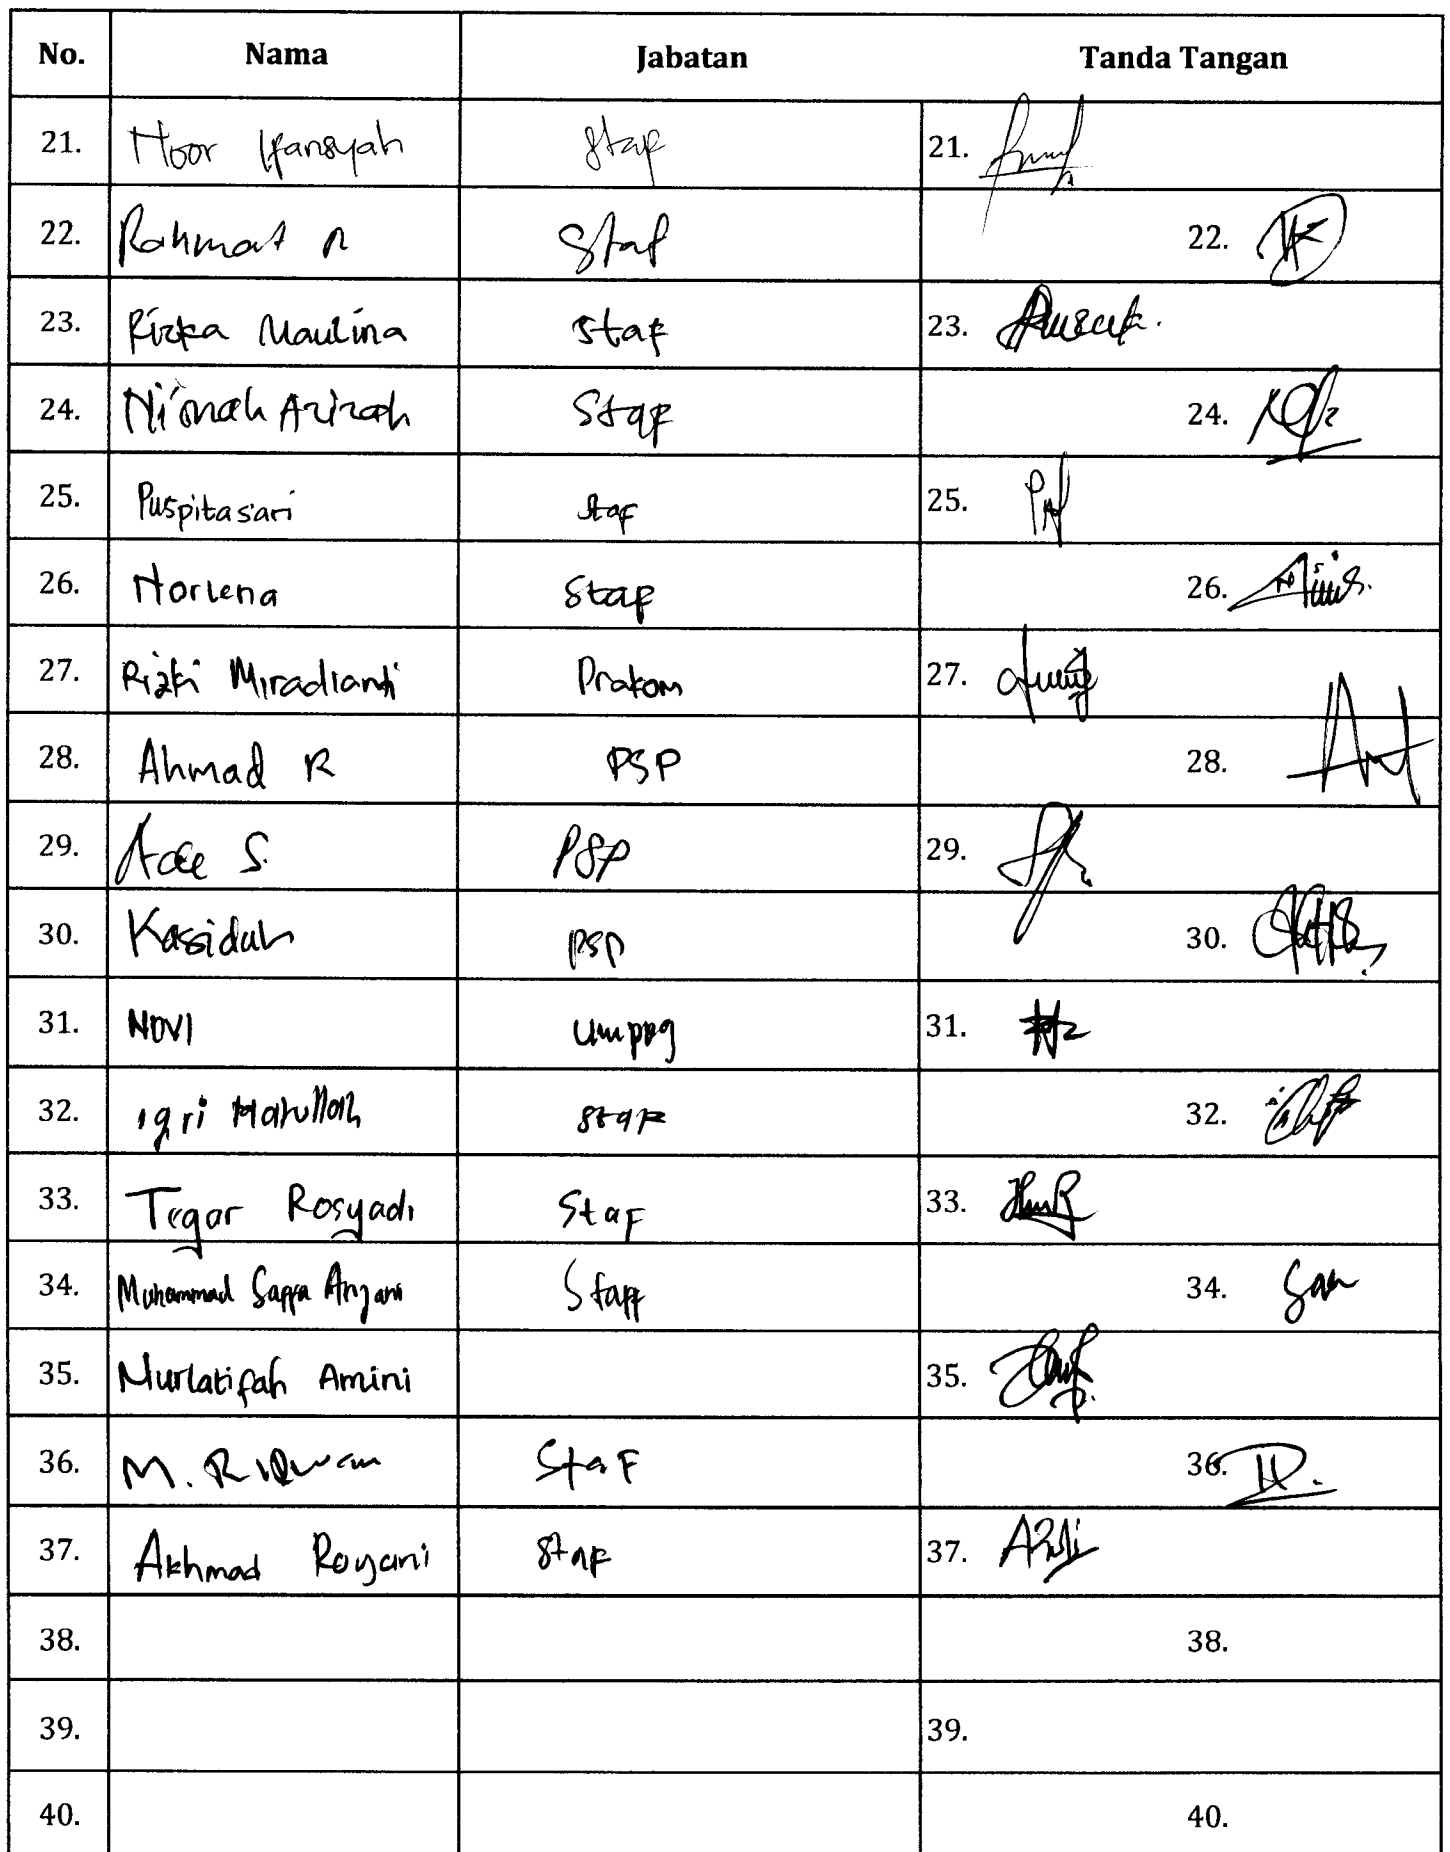 No. Nama Jabatan Tanda Tangan
21. Noor Ifansyah Staf 21.
22. Rahmat R Staf 22.
23. Rizka Maulina Staf 23.
24. Ni'mah Azizah Staf 24.
25. Puspitasari Staf 25.
26. Norlena Staf 26.
27. Rizki Miradianti Prakom 27.
28. Ahmad R PSP 28.
29. Ade S. PSP 29.
30. Kasidah PSP 30.
31. NOVI Umpeg 31.
32. Staf 32.
33. Tegar Rosyadi Staf 33.
34. Muhammad Anjani Staff 34.
35. Nurlatifah Amini 35.
36. M. Staf 36.
37. Akhmad Royani Staf 37.
38. 38.
39. 39.
40. 40.